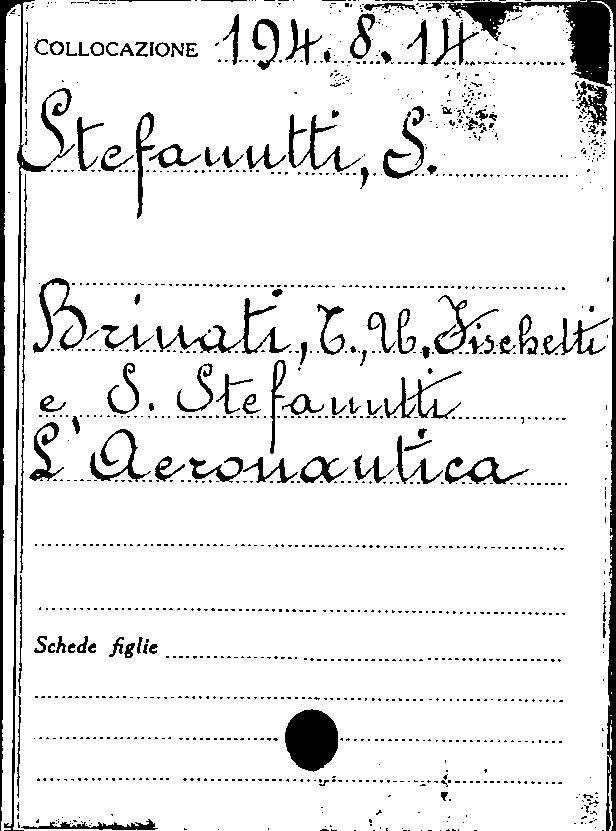 COLLOCAZIONE 194.8.14
Stefanutti, S.
Brinati, T., U. Fischetti
e S. Stefanutti
L'Aeronautica
Schede figlie